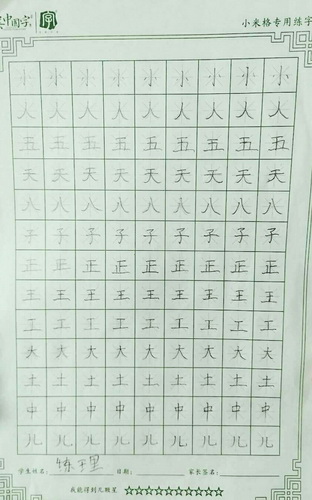 中国字 字 小米格专用练字
小 小 小 小 小 小 小 小 小
人 人 人 人 人 人 人 人 人
五 五 五 五 五 五 五 五 五
天 天 天 天 天 天 天 天 天
八 八 八 八 八 八 八 八 八
子 子 子 子 子 子 子 子 子
正 正 正 正 正 正 正 正 正
王 王 王 王 王 王 王 王 王
工 工 工 工 工 工 工 工 工
大 大 大 大 大 大 大 大 大
土 土 土 土 土 土 土 土 土
中 中 中 中 中 中 中 中 中
儿 儿 儿 儿 儿 儿 儿 儿 儿
学生姓名: 日期: 家长签名:
我能得到几颗星 ☆☆☆☆☆☆☆☆☆☆